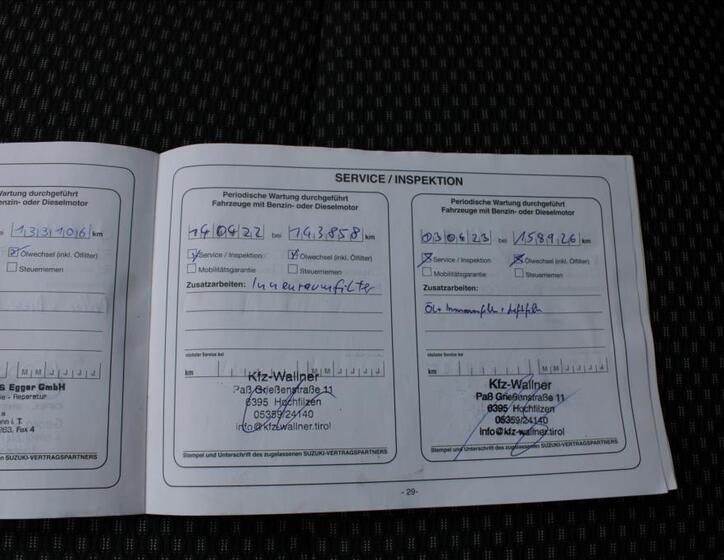 Wartung durchgeführt
enzin- oder Dieselmotor
133106 km
Ölwechsel (inkl. Ölfilter)
Steuerriemen
M M J J J J
S Egger GmbH
e - Reparatur
nn i. T.
263, Fax 4
en SUZUKI-VERTRAGSPARTNERS
SERVICE / INSPEKTION
Periodische Wartung durchgeführt
Fahrzeuge mit Benzin- oder Dieselmotor
14 04 22 bei 143.858 km
Service / Inspektion Ölwechsel (inkl. Ölfilter)
Mobilitätsgarantie Steuerriemen
Zusatzarbeiten: Innenraumfilter
nächster Service bei
km M M J J J J
Kfz-Wallner
Paß Grießenstraße 11
6395 Hochfilzen
05359/24140
info@kfz-wallner.tirol
Stempel und Unterschrift des zugelassenen SUZUKI-VERTRAGSPARTNERS
Periodische Wartung durchgeführt
Fahrzeuge mit Benzin- oder Dieselmotor
03 04 23 bei 158926 km
Service / Inspektion Ölwechsel (inkl. Ölfilter)
Mobilitätsgarantie Steuerriemen
Zusatzarbeiten:
nächster Service bei
km M M J J J J
Kfz-Wallner
Paß Grießenstraße 11
6395 Hochfilzen
05359/24140
info@kfz-wallner.tirol
Stempel und Unterschrift des zugelassenen SUZUKI-VERTRAGSPARTNERS
- 29 -